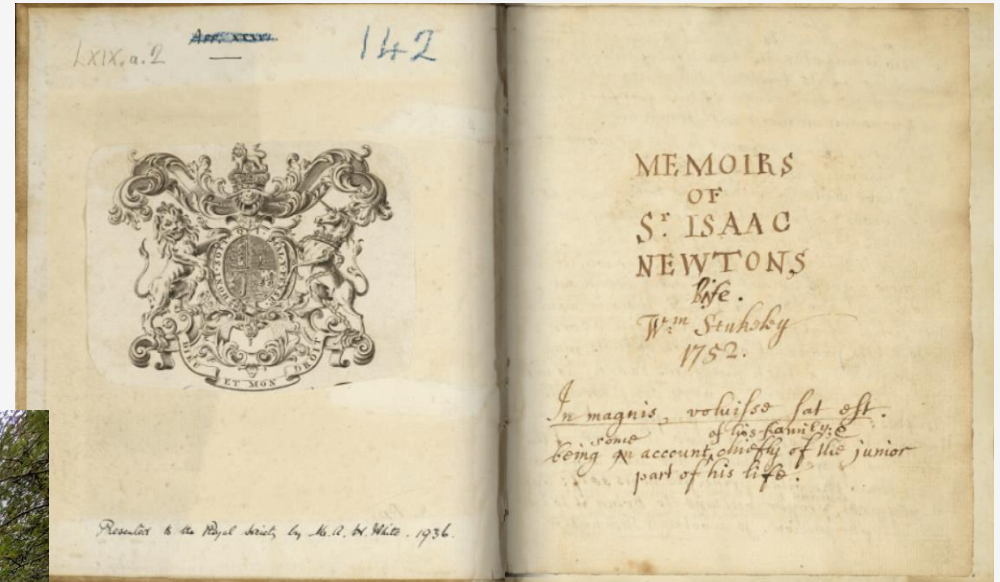 LXIX.a.2
142
HONI SOIT
DIEU ET MON DROIT
Presented to the Royal Society by Mr. A. H. White. 1936.
MEMOIRS
OF
Sr. ISAAC
NEWTONS
life.
Wm Stukeley
1752.
In magnis, voluisse sat est.
some of his family: &
being an account, chiefly of the junior
part of his life.